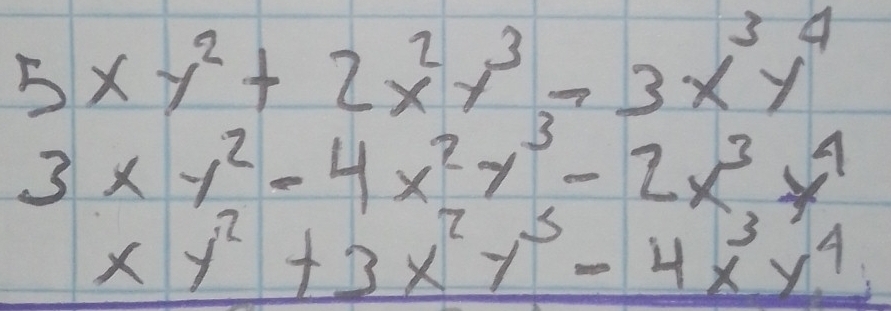 5xy² + 2x²y³ - 3x³y⁴
3xy² - 4x²y³ - 2x³y⁴
xy² + 3x²y³ - 4x³y⁴